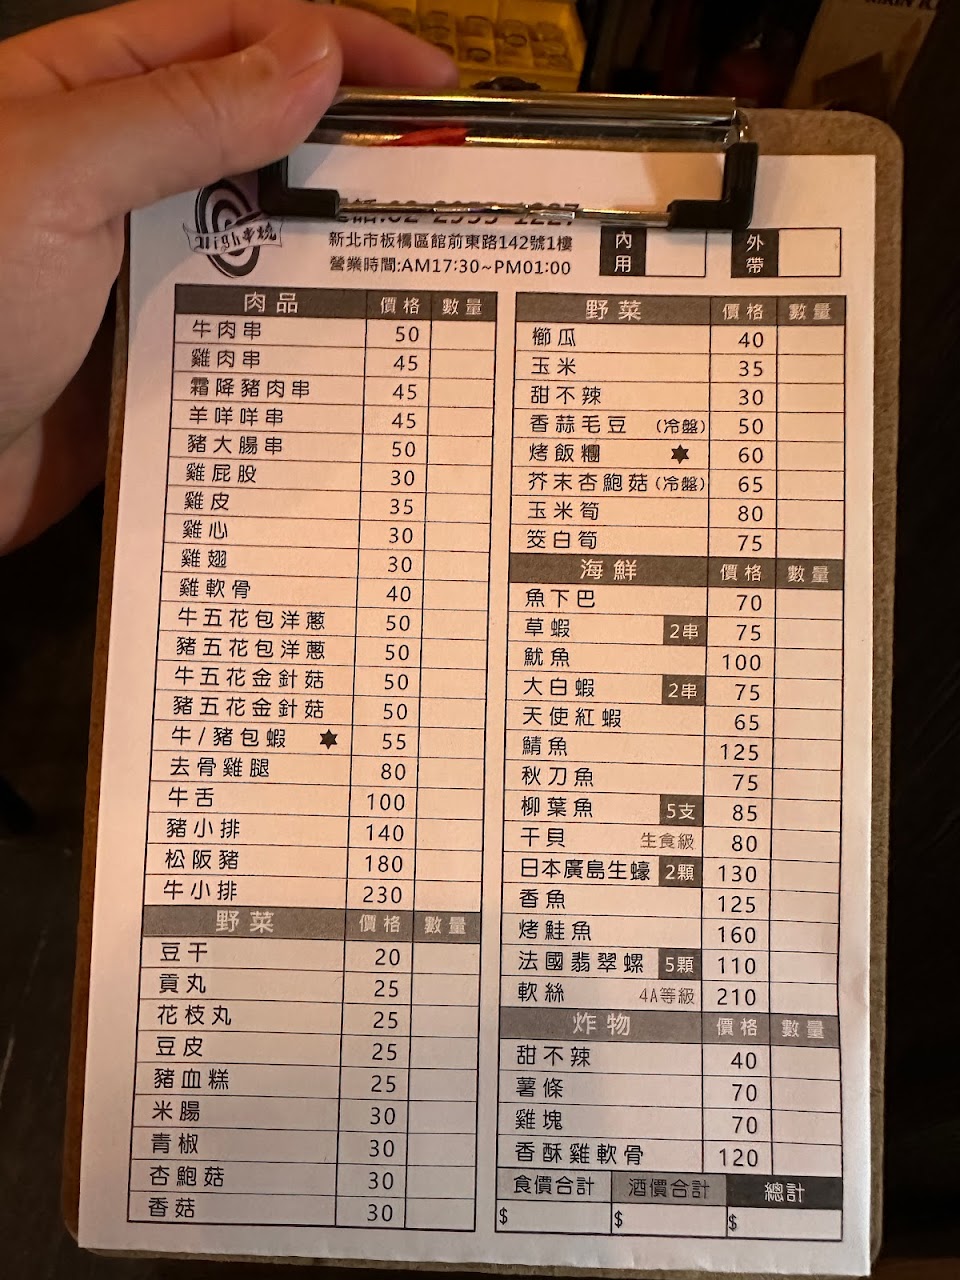 High串燒
02-2955-1227
新北市板橋區館前東路142號1樓
營業時間:AM17:30~PM01:00
內用
外帶
肉品 價格 數量
牛肉串 50
雞肉串 45
霜降豬肉串 45
羊咩咩串 45
豬大腸串 50
雞屁股 30
雞皮 35
雞心 30
雞翅 30
雞軟骨 40
牛五花包洋蔥 50
豬五花包洋蔥 50
牛五花金針菇 50
豬五花金針菇 50
牛/豬包蝦 ★ 55
去骨雞腿 80
牛舌 100
豬小排 140
松阪豬 180
牛小排 230
野菜 價格 數量
豆干 20
貢丸 25
花枝丸 25
豆皮 25
豬血糕 25
米腸 30
青椒 30
杏鮑菇 30
香菇 30
野菜 價格 數量
櫛瓜 40
玉米 35
甜不辣 30
香蒜毛豆 (冷盤) 50
烤飯糰 ★ 60
芥末杏鮑菇(冷盤) 65
玉米筍 80
筊白筍 75
海鮮 價格 數量
魚下巴 70
草蝦 2串 75
魷魚 100
大白蝦 2串 75
天使紅蝦 65
鯖魚 125
秋刀魚 75
柳葉魚 5支 85
干貝 生食級 80
日本廣島生蠔 2顆 130
香魚 125
烤鮭魚 160
法國翡翠螺 5顆 110
軟絲 4A等級 210
炸物 價格 數量
甜不辣 40
薯條 70
雞塊 70
香酥雞軟骨 120
食價合計 酒價合計 總計
$ $ $